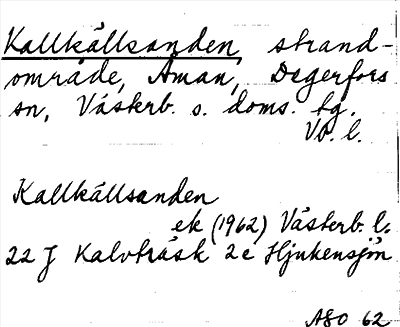 Kallkällsanden, strand-
område, Åman, Degerfors
sn, Västerb. s. doms. tg.
Vb. l.
Kallkällsanden
ek (1962) Västerb. l.
22 J Kalvträsk 2 e Hjukensjön
ASO 62